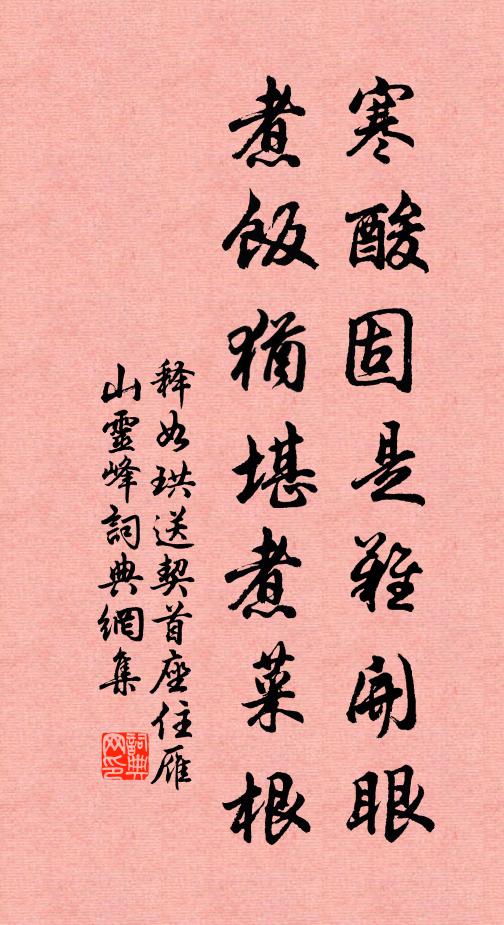 寒酸固是難開眼
煮飯猶堪煮菜根
释如珙送契首座住雁
山靈峰詞典網集
詞典網印